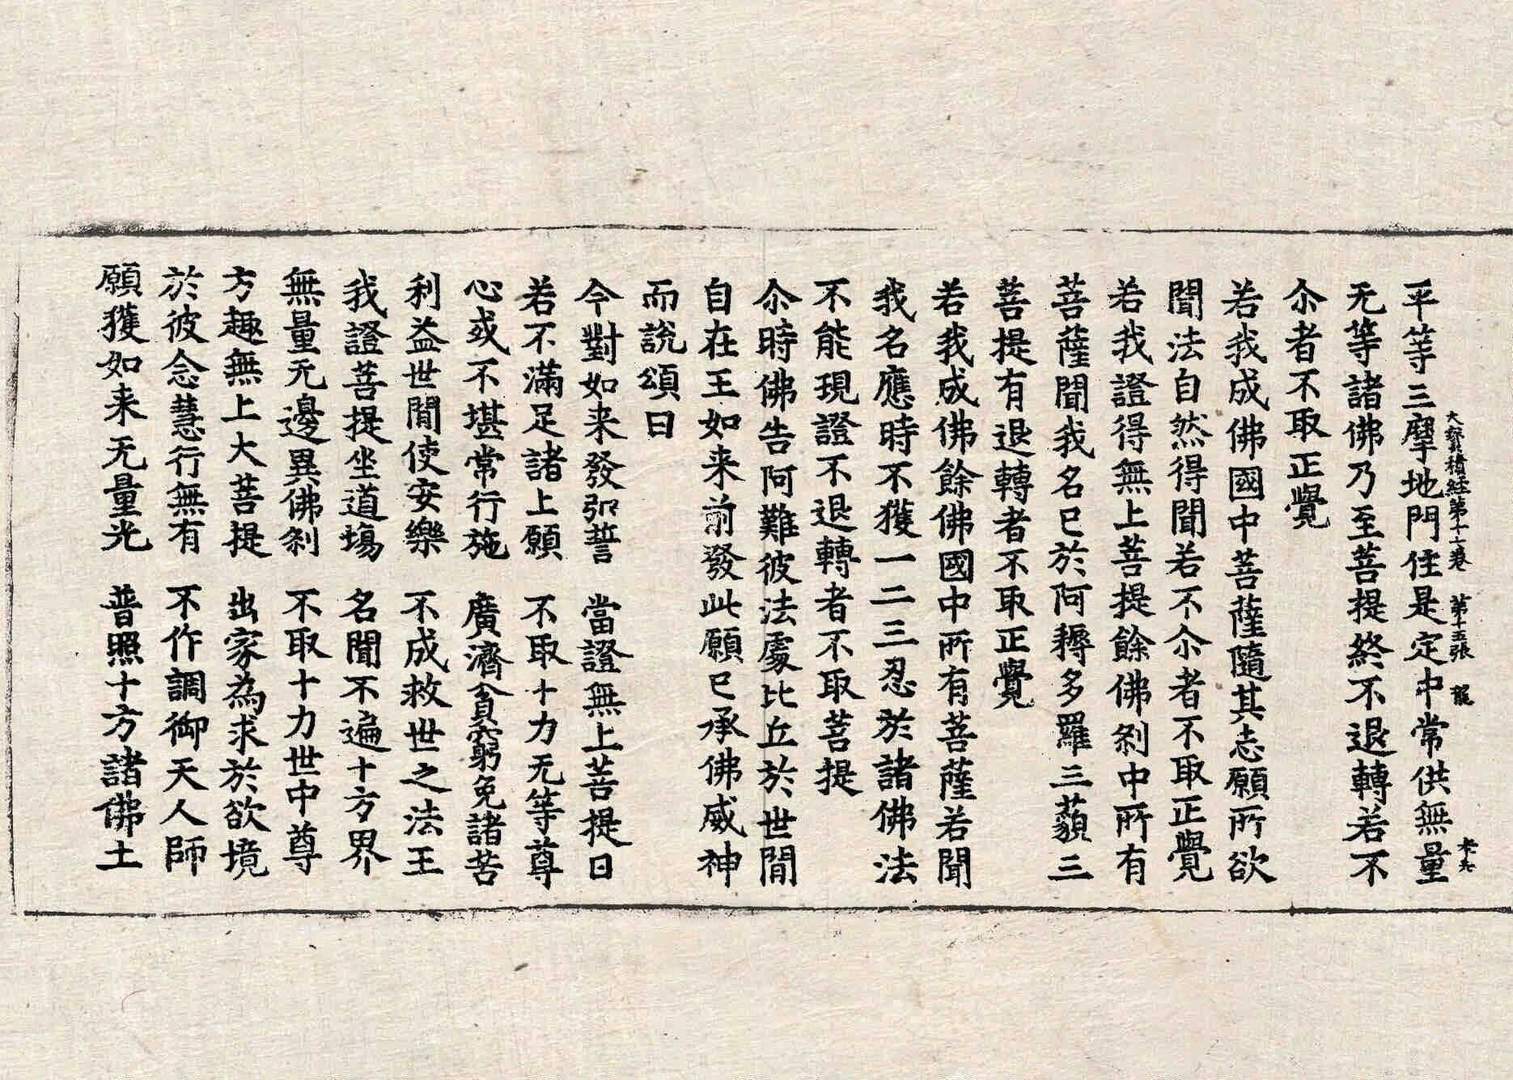 大寳積經第十七卷 第十五張 龍
平等三摩地門住是定中常供無量
无等諸佛乃至菩提終不退轉若不
尒者不取正覺
若我成佛國中菩薩隨其志願所欲
聞法自然得聞若不尒者不取正覺
若我證得無上菩提餘佛刹中所有
菩薩聞我名已於阿耨多羅三藐三
菩提有退轉者不取正覺
若我成佛餘佛國中所有菩薩若聞
我名應時不獲一二三忍於諸佛法
不能現證不退轉者不取菩提
尒時佛告阿難彼法處比丘於世間
自在王如来前發此願已承佛威神
而說頌曰
今對如来發弘誓 當證無上菩提日
若不滿足諸上願 不取十力无等尊
心或不堪常行施 廣濟貧窮免諸苦
利益世間使安樂 不成救世之法王
我證菩提坐道場 名聞不遍十方界
無量无邊異佛刹 不取十力世中尊
方趣無上大菩提 出家為求於欲境
於彼念慧行無有 不作調御天人師
願獲如来无量光 普照十方諸佛土